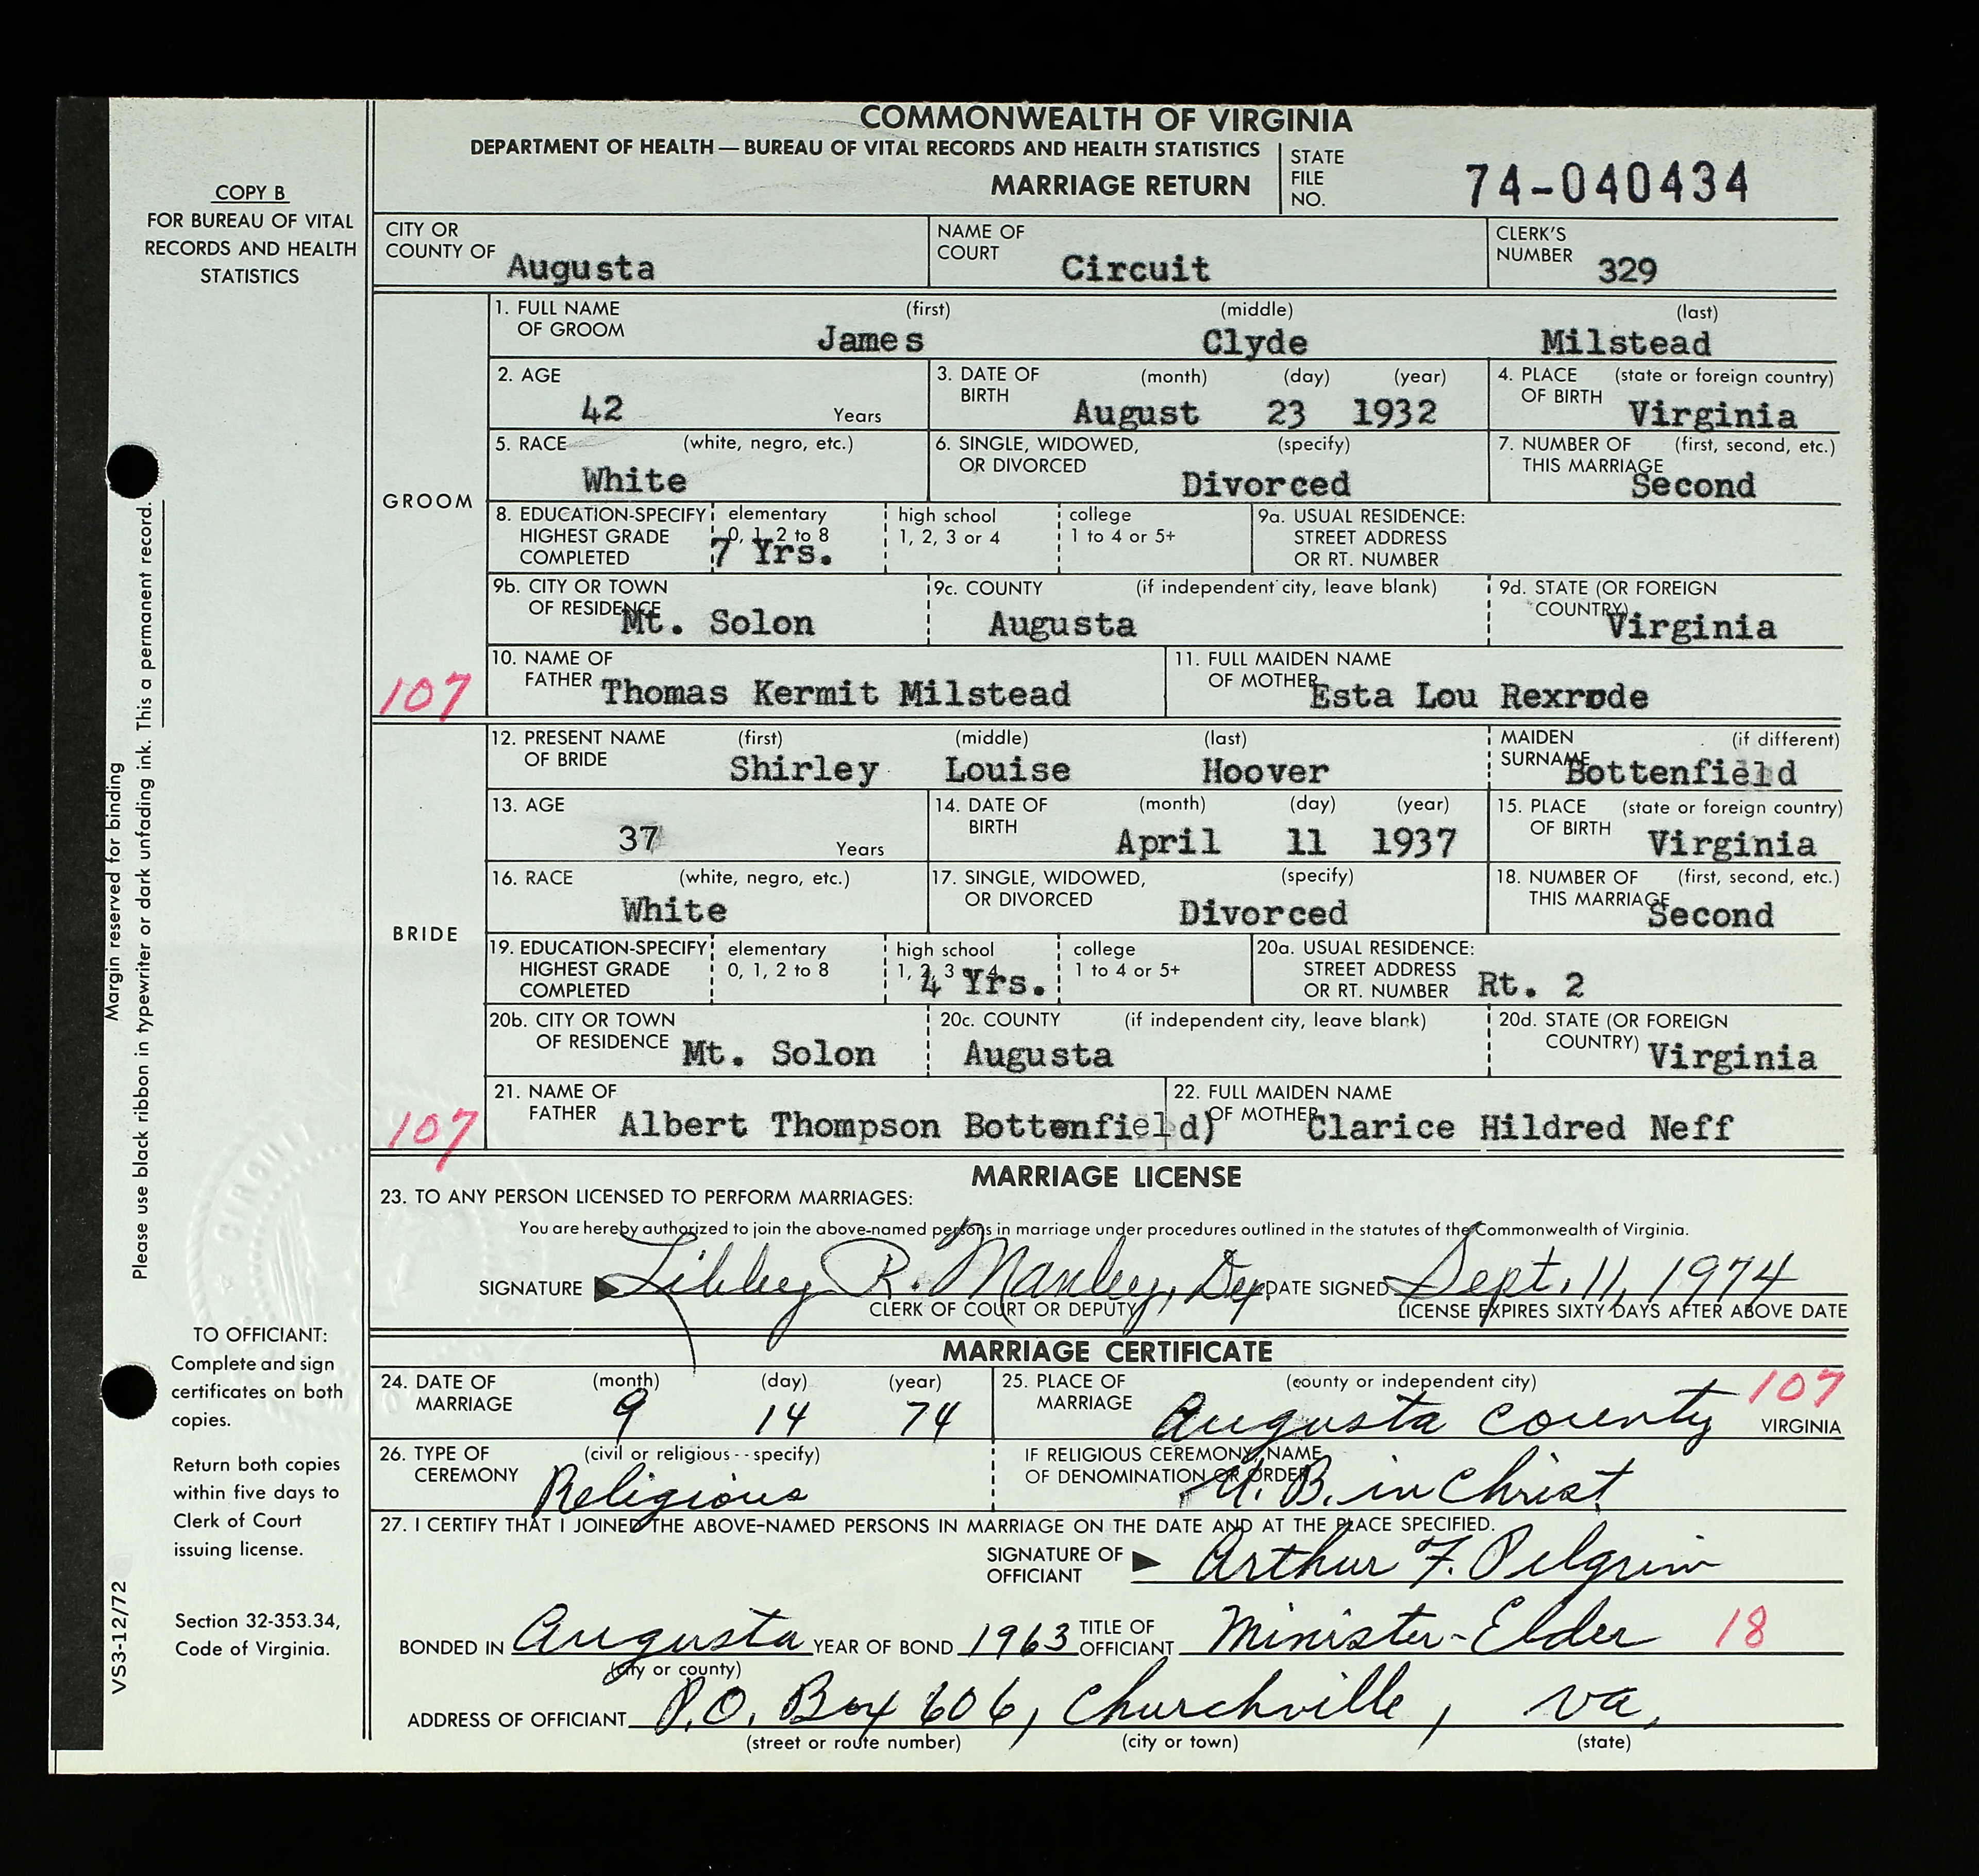 COMMONWEALTH OF VIRGINIA
DEPARTMENT OF HEALTH — BUREAU OF VITAL RECORDS AND HEALTH STATISTICS
MARRIAGE RETURN
STATE FILE NO. 74-040434
COPY B
FOR BUREAU OF VITAL
RECORDS AND HEALTH
STATISTICS
CITY OR COUNTY OF Augusta NAME OF COURT Circuit CLERK'S NUMBER 329
GROOM
1. FULL NAME OF GROOM (first) James (middle) Clyde (last) Milstead
2. AGE 42 Years 3. DATE OF BIRTH (month) August (day) 23 (year) 1932 4. PLACE OF BIRTH (state or foreign country) Virginia
5. RACE (white, negro, etc.) White 6. SINGLE, WIDOWED, OR DIVORCED (specify) Divorced 7. NUMBER OF THIS MARRIAGE (first, second, etc.) Second
8. EDUCATION-SPECIFY HIGHEST GRADE COMPLETED elementary 0, 1, 2 to 8 7 Yrs. high school 1, 2, 3 or 4 college 1 to 4 or 5+ 9a. USUAL RESIDENCE: STREET ADDRESS OR RT. NUMBER
9b. CITY OR TOWN OF RESIDENCE Mt. Solon 9c. COUNTY (if independent city, leave blank) Augusta 9d. STATE (OR FOREIGN COUNTRY) Virginia
107
10. NAME OF FATHER Thomas Kermit Milstead 11. FULL MAIDEN NAME OF MOTHER Esta Lou Rexrode
BRIDE
12. PRESENT NAME OF BRIDE (first) Shirley (middle) Louise (last) Hoover MAIDEN SURNAME (if different) Bottenfield
13. AGE 37 Years 14. DATE OF BIRTH (month) April (day) 11 (year) 1937 15. PLACE OF BIRTH (state or foreign country) Virginia
16. RACE (white, negro, etc.) White 17. SINGLE, WIDOWED, OR DIVORCED (specify) Divorced 18. NUMBER OF THIS MARRIAGE (first, second, etc.) Second
19. EDUCATION-SPECIFY HIGHEST GRADE COMPLETED elementary 0, 1, 2 to 8 high school 1, 2, 3 or 4 4 Yrs. college 1 to 4 or 5+ 20a. USUAL RESIDENCE: STREET ADDRESS OR RT. NUMBER Rt. 2
20b. CITY OR TOWN OF RESIDENCE Mt. Solon 20c. COUNTY (if independent city, leave blank) Augusta 20d. STATE (OR FOREIGN COUNTRY) Virginia
107
21. NAME OF FATHER Albert Thompson Bottenfield) 22. FULL MAIDEN NAME OF MOTHER Clarice Hildred Neff
MARRIAGE LICENSE
23. TO ANY PERSON LICENSED TO PERFORM MARRIAGES:
You are hereby authorized to join the above-named persons in marriage under procedures outlined in the statutes of the Commonwealth of Virginia.
SIGNATURE Libbey R. Manley, Dep. DATE SIGNED Sept. 11, 1974
CLERK OF COURT OR DEPUTY LICENSE EXPIRES SIXTY DAYS AFTER ABOVE DATE
MARRIAGE CERTIFICATE
24. DATE OF MARRIAGE (month) 9 (day) 14 (year) 74 25. PLACE OF MARRIAGE (county or independent city) Augusta County 107 VIRGINIA
26. TYPE OF CEREMONY (civil or religious - - specify) Religious IF RELIGIOUS CEREMONY, NAME OF DENOMINATION OR ORDER U. B. in Christ
27. I CERTIFY THAT I JOINED THE ABOVE-NAMED PERSONS IN MARRIAGE ON THE DATE AND AT THE PLACE SPECIFIED.
SIGNATURE OF OFFICIANT Arthur F. Pilgrim
BONDED IN Augusta YEAR OF BOND 1963 TITLE OF OFFICIANT Minister-Elder 18
(city or county)
ADDRESS OF OFFICIANT P.O. Box 606, Churchville, Va.
(street or route number) (city or town) (state)
Margin reserved for binding
Please use black ribbon in typewriter or dark unfading ink. This a permanent record.
CIRCUIT
TO OFFICIANT:
Complete and sign
certificates on both
copies.
Return both copies
within five days to
Clerk of Court
issuing license.
Section 32-353.34,
Code of Virginia.
VS3-12/72